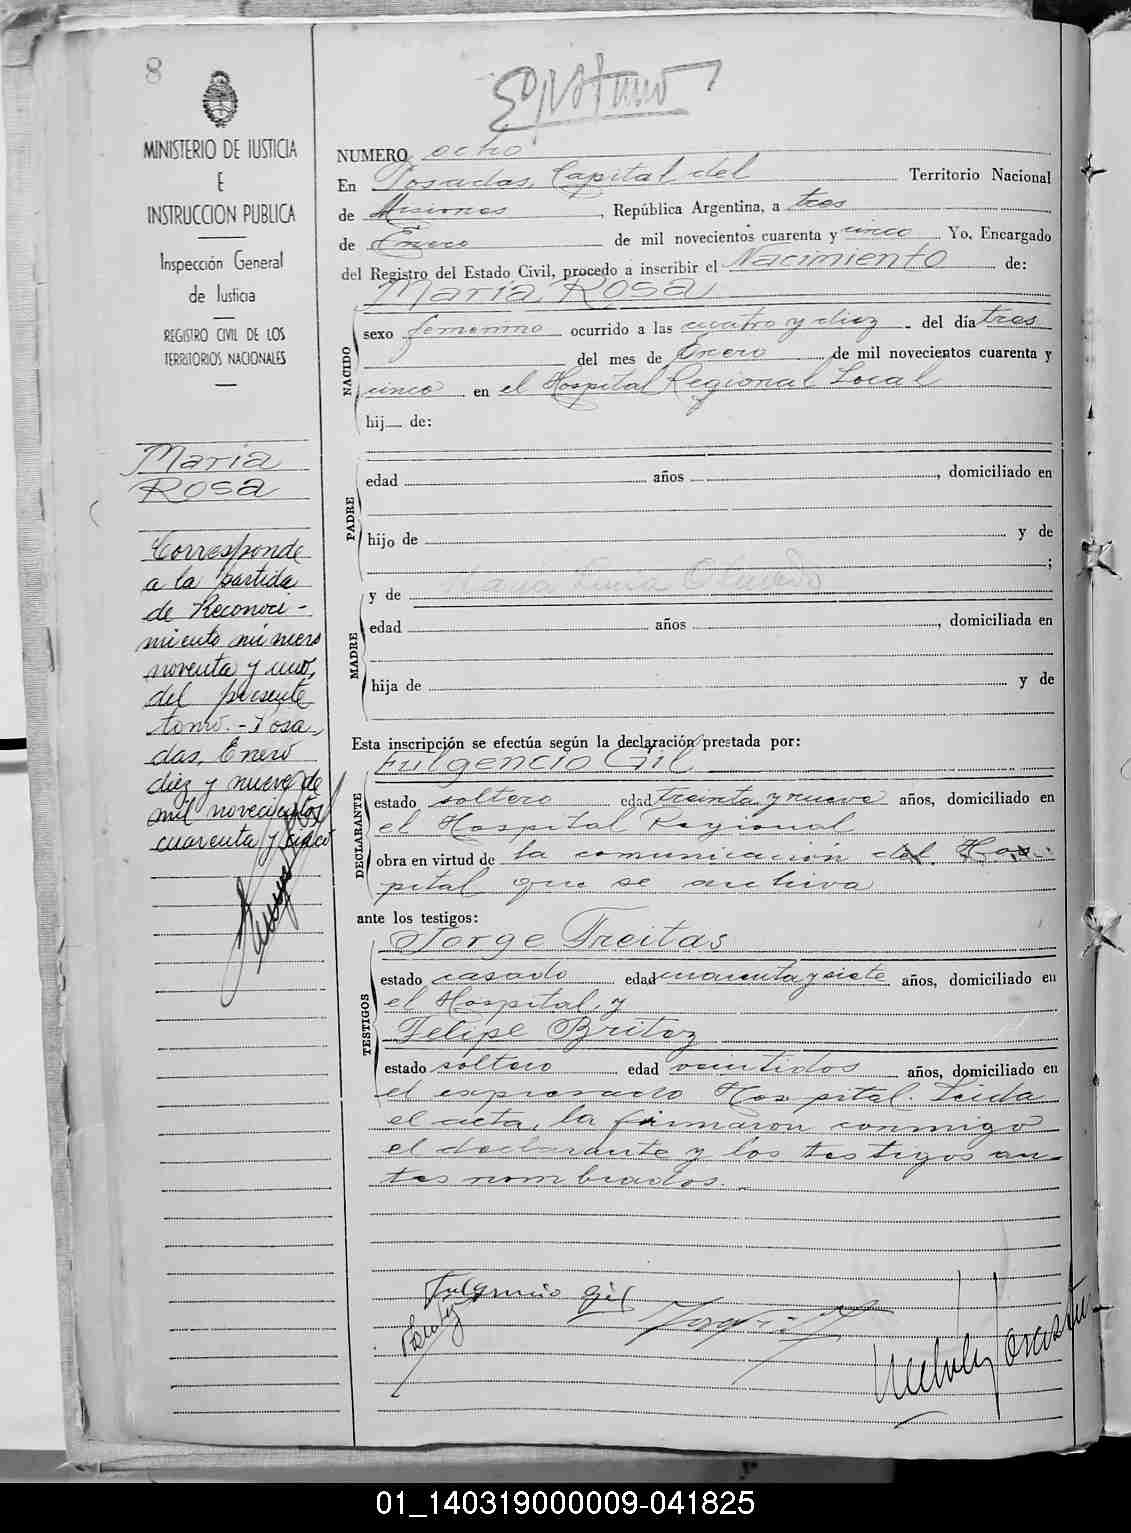 8
MINISTERIO DE JUSTICIA
E
INSTRUCCION PUBLICA
Inspección General
de Justicia
REGISTRO CIVIL DE LOS
TERRITORIOS NACIONALES
Maria
Rosa
Corresponde
a la partida
de Reconoci-
miento número
noventa y uno,
del presente
tomo.- Posa-
das, Enero
diez y nueve de
mil novecientos
cuarenta y cinco
NUMERO ocho
En Posadas, Capital del Territorio Nacional
de Misiones, República Argentina, a tres
de Enero de mil novecientos cuarenta y cinco Yo, Encargado
del Registro del Estado Civil, procedo a inscribir el Nacimiento de:
Maria Rosa
NACIDO
sexo femenino ocurrido a las cuatro y diez del día tres
del mes de Enero de mil novecientos cuarenta y
cinco en el Hospital Regional Local
hij de:
PADRE
edad años , domiciliado en
hijo de y de
;
y de Maria Lucia Olmedo
MADRE
edad años , domiciliada en
hija de y de
Esta inscripción se efectúa según la declaración prestada por:
Fulgencio Gil
DECLARANTE
estado soltero edad treinta y nueve años, domiciliado en
el Hospital Regional
obra en virtud de la comunicación del Hos-
pital que se archiva
ante los testigos:
Jorge Freitas
TESTIGOS
estado casado edad cuarenta y siete años, domiciliado en
el Hospital, y
Felipe Britez
estado soltero edad veintidos años, domiciliado en
el expresado Hospital. Leida
el acta, la firmaron conmigo
el declarante y los testigos an-
tes nombrados.
Fulgencio Gil
01_140319000009-041825